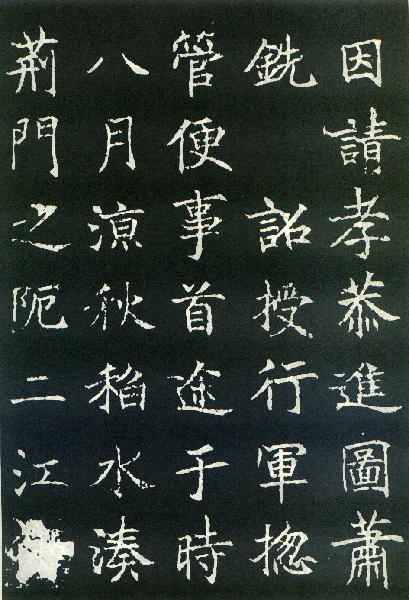 因請孝恭進圖蕭
銑 詔授行軍揔
管便事首途于時
八月凉秋稻水湊
荊門之阨二江